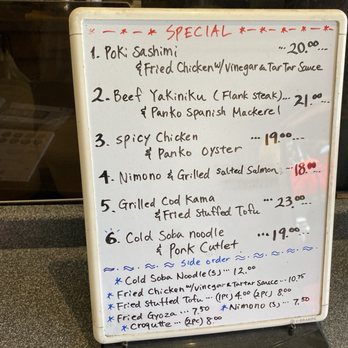 * - * - * - * SPECIAL * - * - * - *
1. Poki Sashimi ... 20.00
& Fried Chicken w/ Vinegar & Tar Tar Sauce
2. Beef Yakiniku (Flank steak)... 21.00
& Panko Spanish Mackerel
3. spicy Chicken ... 19.00
& Panko Oyster
4. Nimono & Grilled Salted Salmon ... 18.00
5. Grilled Cod Kama ... 23.00
& Fried Stuffed Tofu
6. Cold Soba noodle ... 19.00
& Pork Cutlet
≈ ≈ ≈ Side order ≈ ≈ ≈
* Cold Soba Noodle (s) ... 12.00
* Fried Chicken w/ Vinegar & Tartar Sauce ... 10.75
* Fried Stuffed Tofu ... (1pc) 4.00 (2pc) 8.00
* Fried Gyoza ... 7.50 * Nimono (s) ... 7.50
* Croquette ... (2pc) 8.00